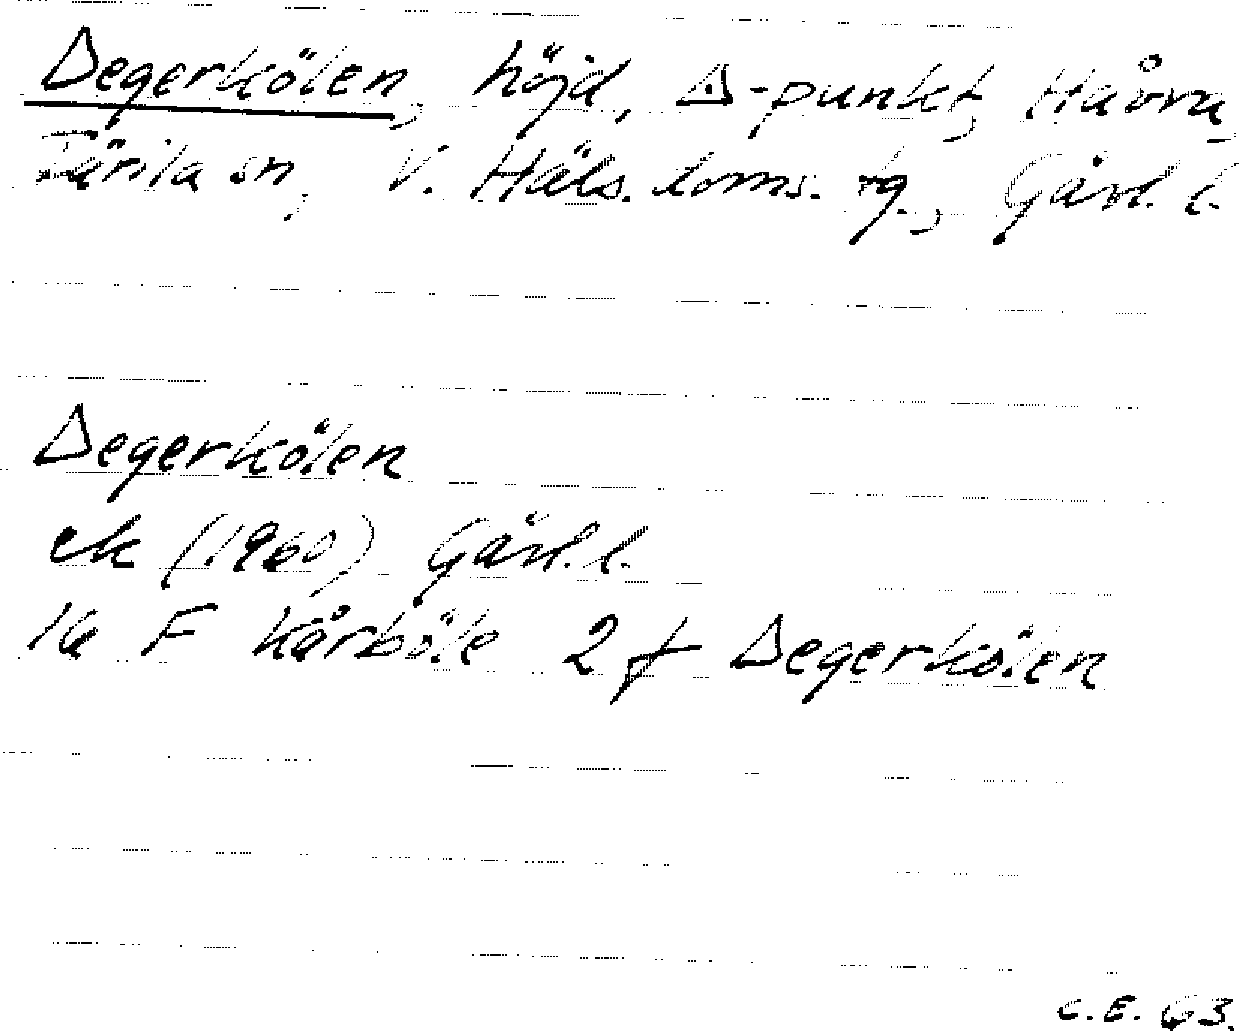 Degerkölen, höjd, Δ-punkt, Håvra,
Färila sn, V. Häls. doms. tg., Gävl. l.
Degerkölen
ek (1960) Gävl. l.
16 F Kårböle 2 f Degerkölen
C.E. 63.